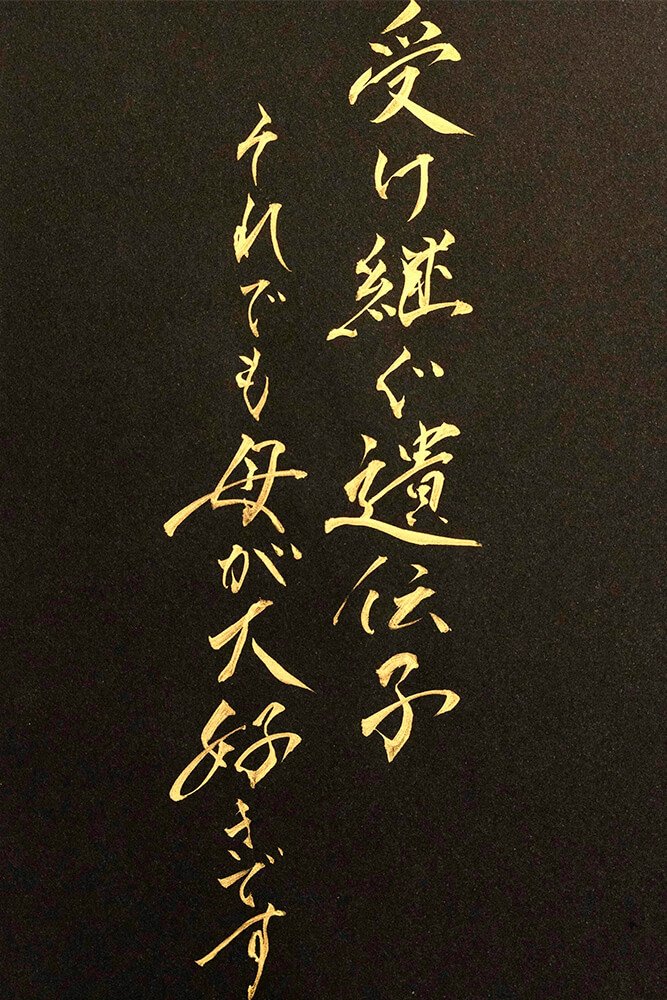 受け継ぐ遺伝子
それでも母が大好きです